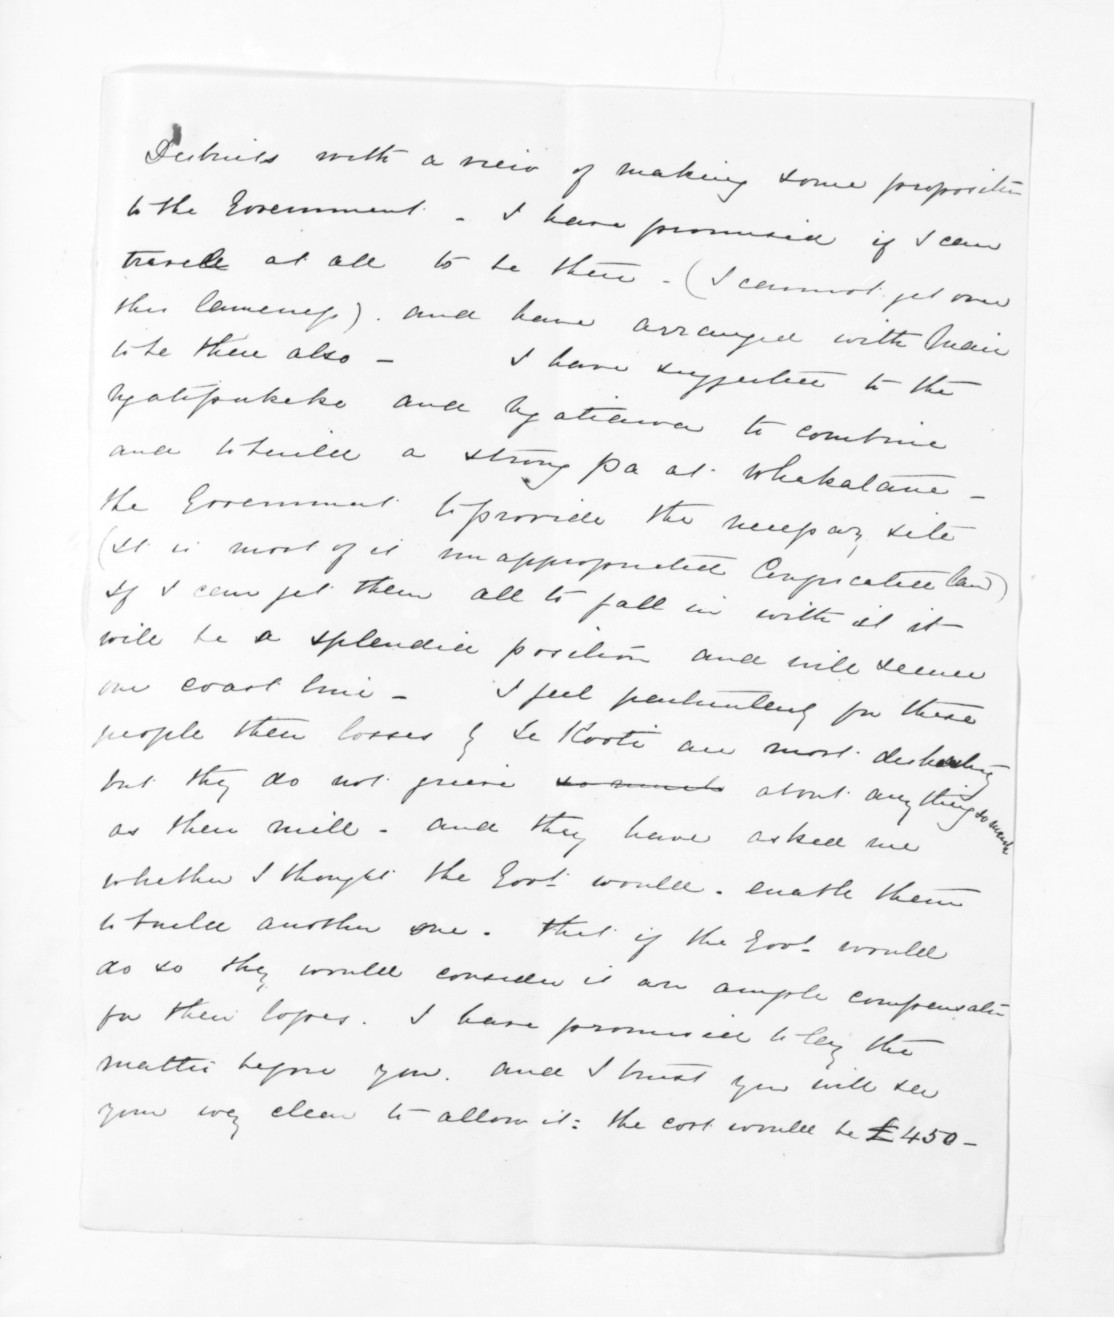 Districts with a view of making some proposition
to the Government - I have promised if I can
travel at all to be there - (I cannot get over
this lameness). and have arranged with Mair
to be there also - I have suggested to the
Ngatipukeko and Ngatiawa to combine
and to build a strong pa at Whakatane -
the Government to provide the necessary site
(It is most of it unappropriated Confiscated land)
If I can get them all to fall in with it it
will be a splendid position and will secure
our coast line - I feel particularly for these
people their losses by Te Kooti are most disheartening
but they do not grieve so much about any thing so much
as their mill - and they have asked me
whether I thought the Govt. would - enable them
to build another one - that if the Govt. would
do so they would consider it an ample compensation
for their losses. I have promised to lay the
matter before you. and I trust you will see
your way clear to allow it: the cost would be £450 -